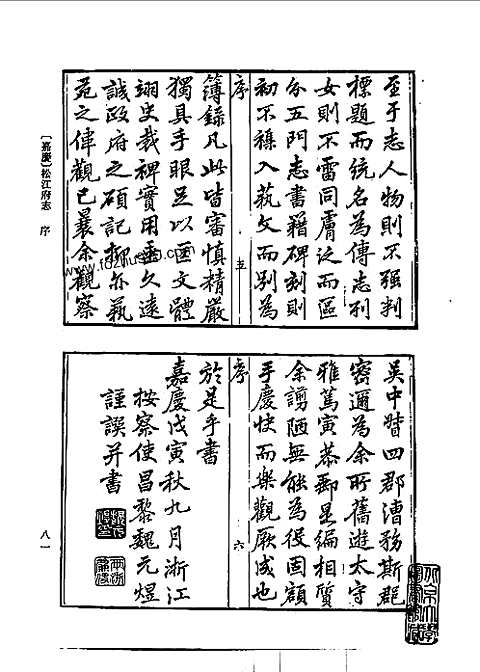 至于志人物則不强判
標題而統名為傳志列
女則不雷同膚泛而區
分五門志書籍碑刻則
初不襍入藝文而別為
序
五
簿錄凡此皆審慎精嚴
獨具手眼足以匡文體
翊史裁裨實用垂久遠
誠政府之碩記抑亦藝
苑之偉觀已曩余觀察
〔嘉慶〕松江府志 序
吳中督四郡漕務斯郡
密邇為余所舊遊太守
雅篤寅恭郵是編相質
余謭陋無能為役固額
手慶快而樂觀厥成也
序
六
於是乎書
嘉慶戊寅秋九月浙江
按察使昌黎魏元煜
謹譔并書
八一